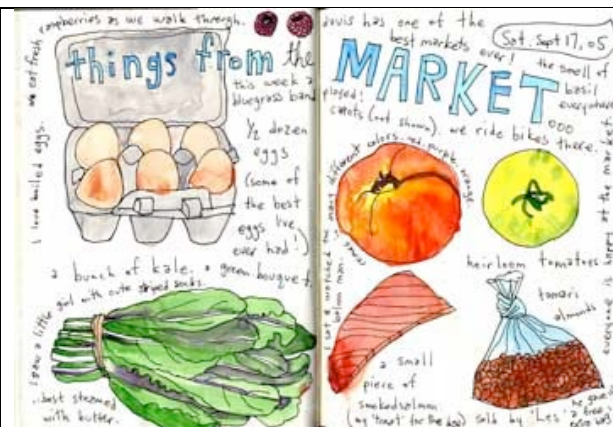 raspberries as we walk through.
we eat fresh
I love boiled eggs.
things from the
this week a
bluegrass band
½ dozen
eggs
(some of
the best
eggs I've
ever had!)
a bunch of kale. a green bouquet.
I saw a little girl with cute striped socks.
..best steamed
with butter.
davis has one of the
best markets ever!
Sat. Sept 17, 05
MARKET
the smell of
basil
everywhere
played!
carrots (not shown).
we ride bikes there.
different colors. red. purple. orange.
heirloom tomatoes
tamari
almonds
everyone is happy at the market
I sat & watched the
salmon man.
a small
piece of
smoked salmon
(my "treat" for the day)
sold by 'Les'
he gave
a free